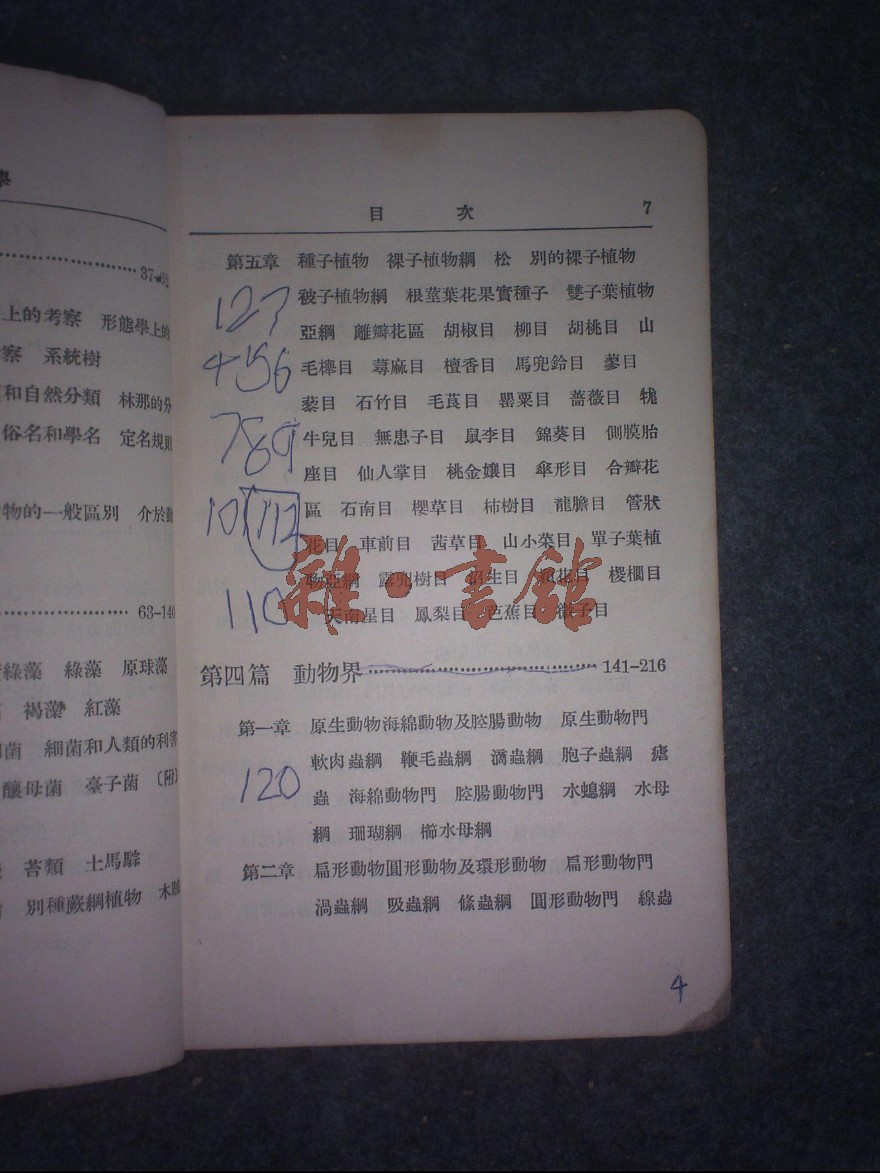 學
37-62
上的考察 形態學上的
察 系統樹
和自然分類 林那的分
俗名和學名 定名規則
物的一般區別 介於動
63-140
綠藻 綠藻 原球藻
褐藻 紅藻
菌 細菌和人類的利害
釀母菌 臺子菌 〔附〕
苔類 土馬騌
別種蕨綱植物 木賊
目 次 7
第五章 種子植物 裸子植物綱 松 別的裸子植物
被子植物綱 根莖葉花果實種子 雙子葉植物
亞綱 離瓣花區 胡椒目 柳目 胡桃目 山
毛櫸目 蕁麻目 檀香目 馬兜鈴目 蓼目
藜目 石竹目 毛茛目 罌粟目 薔薇目 牻
牛兒目 無患子目 鼠李目 錦葵目 側膜胎
座目 仙人掌目 桃金孃目 傘形目 合瓣花
區 石南目 櫻草目 柿樹目 龍膽目 管狀
花目 車前目 茜草目 山小菜目 單子葉植
物亞綱 露兜樹目 沼生目 穎花目 椶櫚目
天南星目 鳳梨目 芭蕉目 微子目
第四篇 動物界 141-216
第一章 原生動物海綿動物及腔腸動物 原生動物門
軟肉蟲綱 鞭毛蟲綱 滴蟲綱 胞子蟲綱 瘧
蟲 海綿動物門 腔腸動物門 水螅綱 水母
綱 珊瑚綱 櫛水母綱
第二章 扁形動物圓形動物及環形動物 扁形動物門
渦蟲綱 吸蟲綱 絛蟲綱 圓形動物門 線蟲
127
456
789
10 112
110
120
4
雜·書館